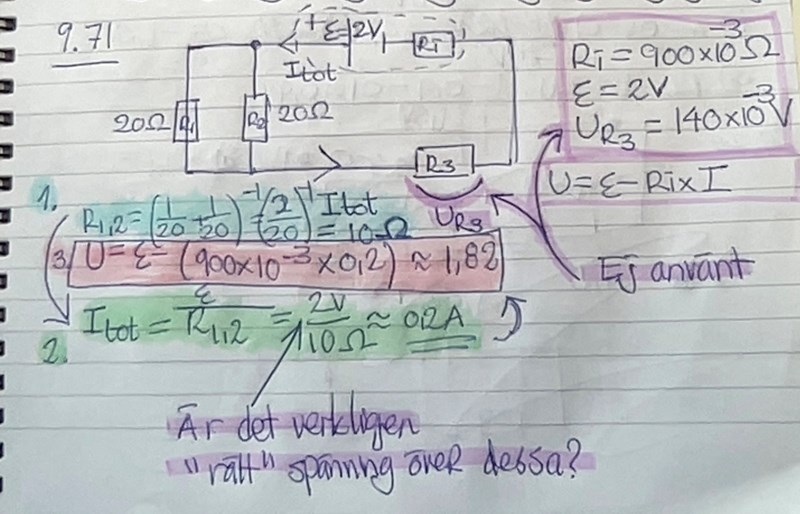 9.71
+ ε=2V
Ri
Itot
20Ω R1
R2 20Ω
R3
UR3
Itot
Ri = 900×10⁻³ Ω
ε = 2V
UR3 = 140×10⁻³ V
U = ε - Ri×I
Ej använt
1. R1,2 = (1/20 + 1/20)⁻¹ = (2/20)⁻¹ = 10Ω
3. U = ε - (900×10⁻³ × 0,2) ≈ 1,82
2. Itot = ε/R1,2 = 2V/10Ω ≈ 0,2A
Är det verkligen
"rätt" spänning över dessa?